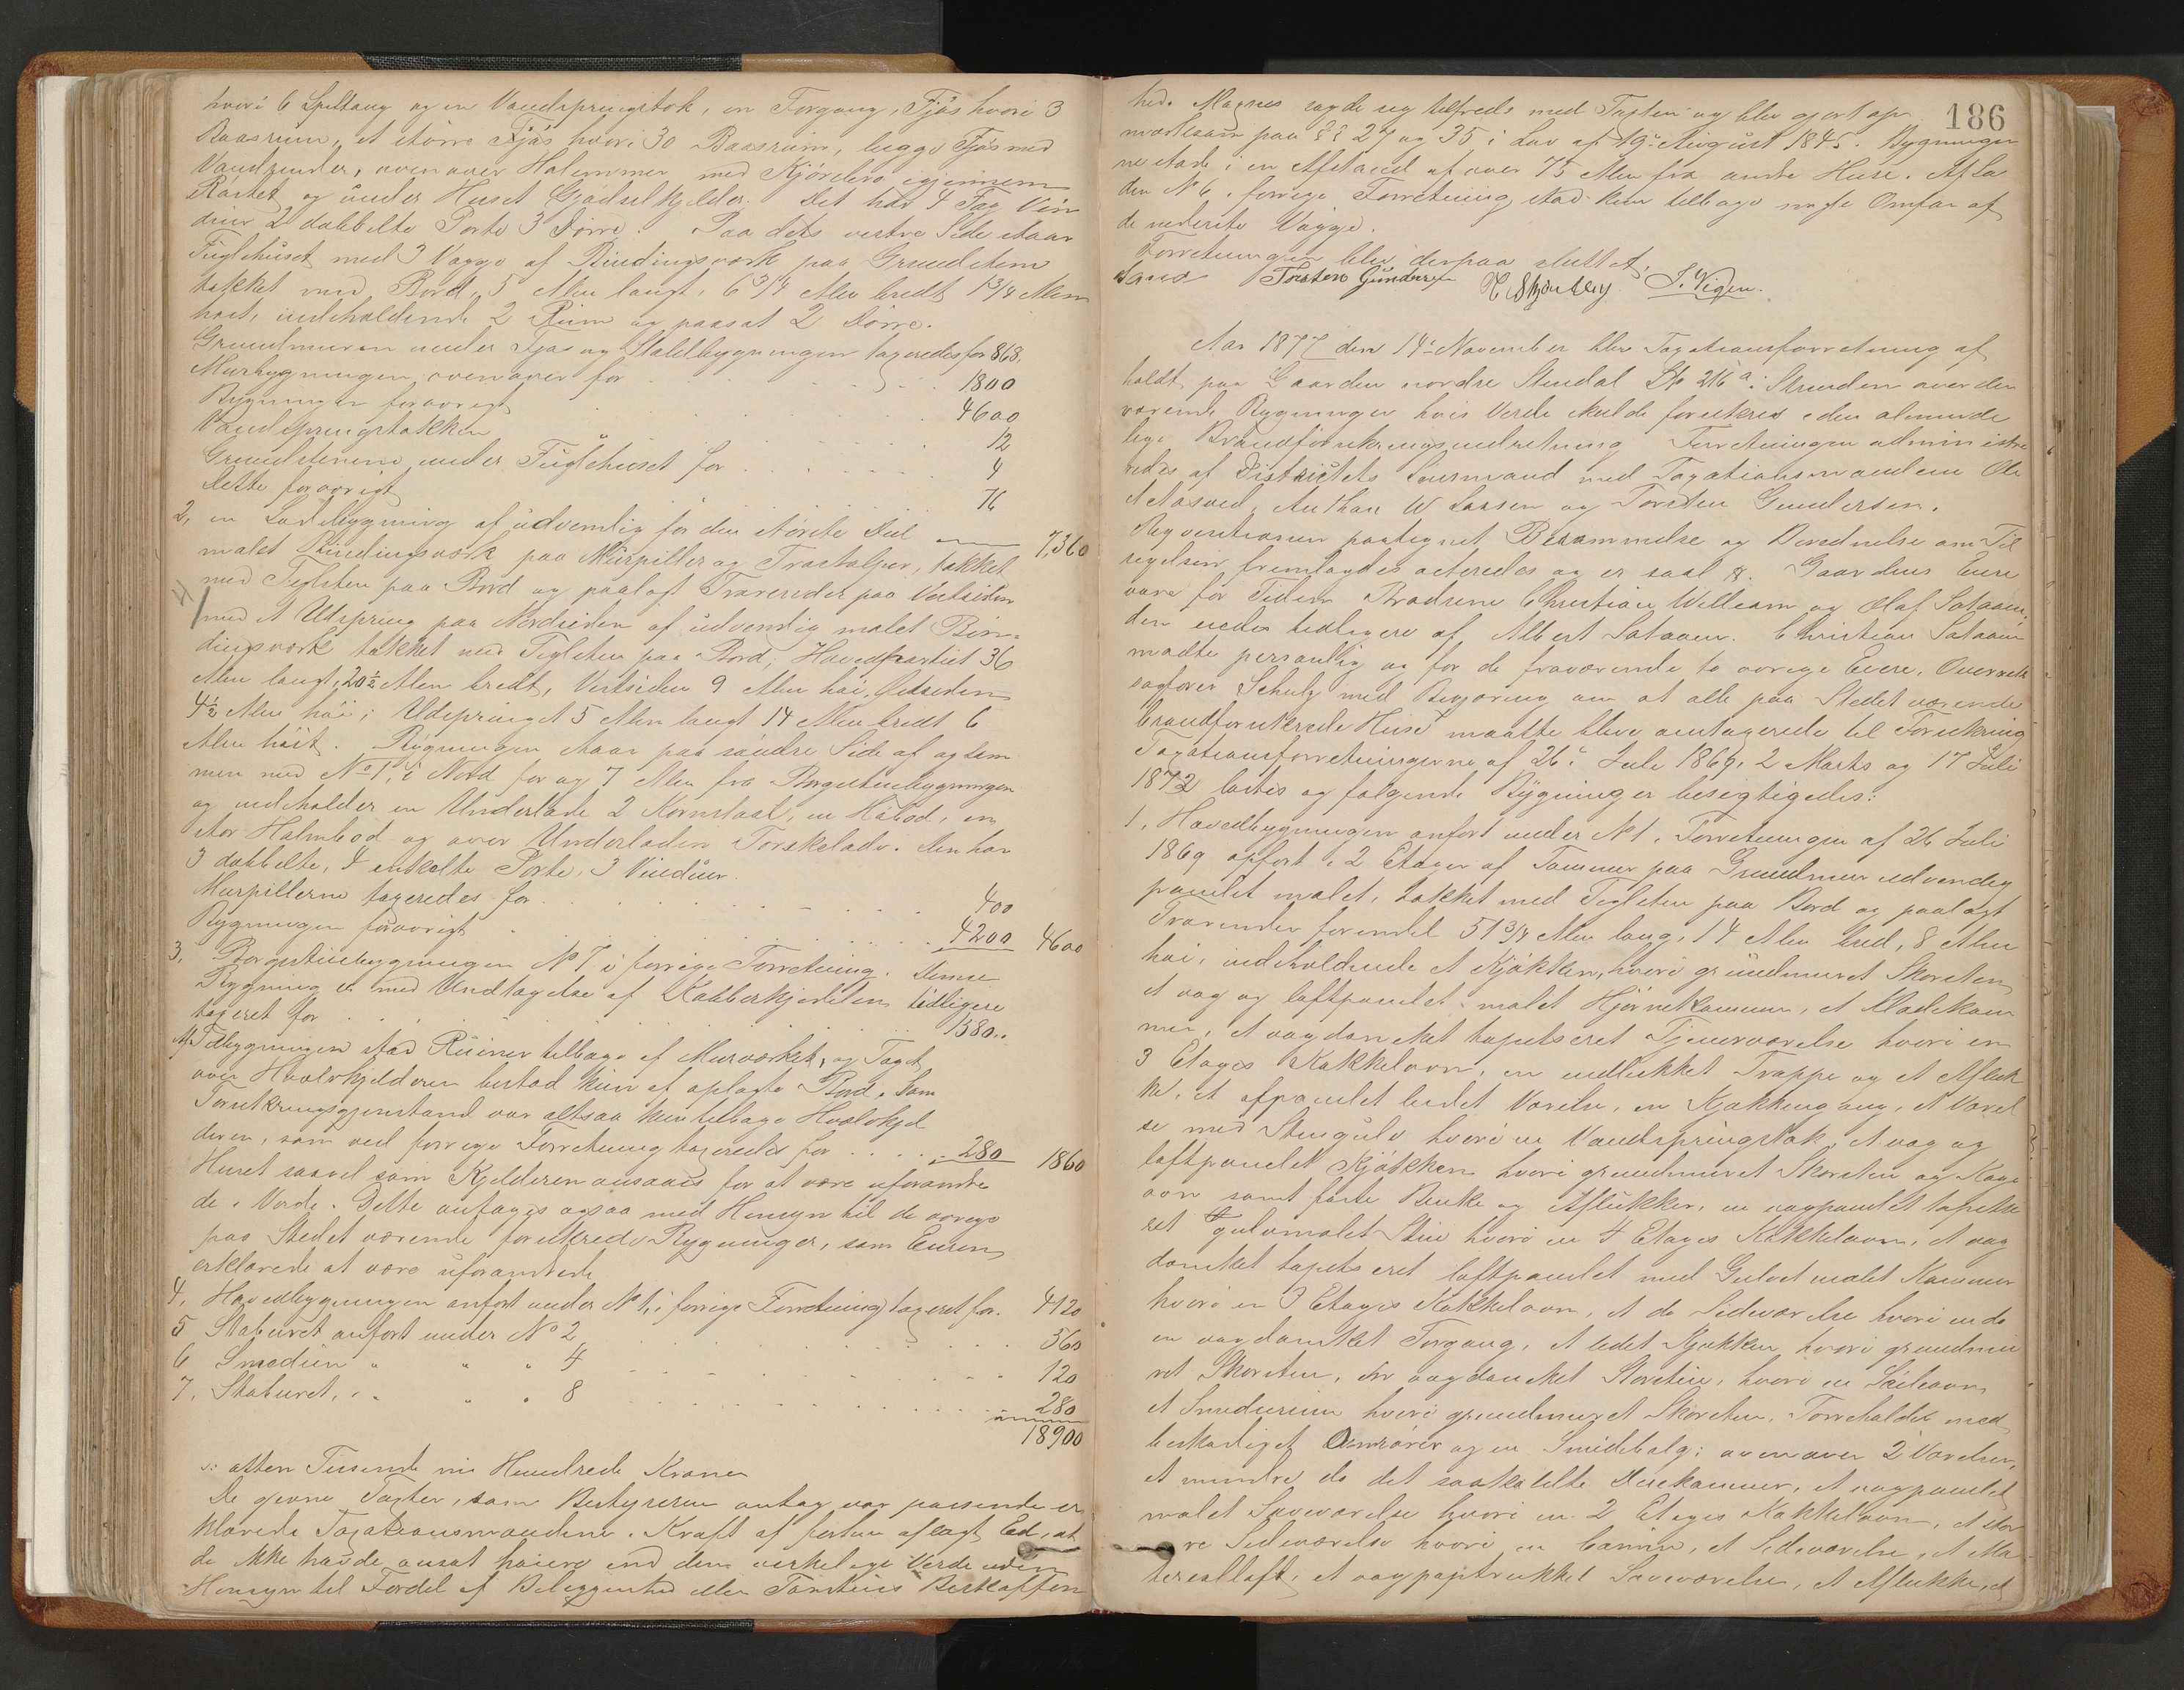 hvori 6 Spiltaug og en Vandspringstok, en Forgang, Fjøs hvori 3
Baasrum, et større Fjøs hvori 30 Baasrum, begge Fjøs med
Vandrender, ovenover Halmrum med Kjørebro igjennem
og under Huset Gjødselkjelder. Det har 4 Fag Vin
duer 2 dobbelte Porte 3 Dørre. Paa dets vestre Side staar
Fuglehuset med 3 Vægge af Bindingsværk paa Grundstene
tækket med Bord, 5 Alen langt, 6 3/4 Alen bredt 1 3/4 Alen
høit, indeholdende 2 Rum og paasat 2 Dørre.
Grundmuren under Fjøs og Staldbygningen taxeredes for 868.
Murbygningen ovenover for 1800
Bygningen forøvrigt 4600
Vandspringstokken 12
Grundstenene under Fuglehuset for 4
dette forøvrigt 76
7,360
2, en Ladebygning af udvendig for den største Del
malet Bindingsværk paa Murpiller og Træstolper, tækket
med Teglsten paa Bord og paalagt Tagrender paa Vestsiden
med et Udspring paa Nordsiden af udvendig malet Bin-
dingsværk tækket med Teglsten paa Bord, Hovedpartiet 36
Alen langt, 20 1/2 Alen bredt, Vestsiden 9 Alen høi, Østsiden
4 1/2 Alen høi; Udspringet 5 Alen langt 14 Alen bredt 6
Alen høit. Bygningen staar paa søndre Side af og sam
men med No 1, i Nord for og 7 Alen fra Borgestuebygningen
og indeholder en Underlade 2 Kornstaal, en Høbod, en
stor Halmbod og over Underladen Torskelade. Den har
3 dobbelte, 4 enkelte Porte, 3 Vinduer.
Murpillerne taxeredes for 400
Bygningen forøvrigt 4200 4600
3, Borgestuebygningen No 7 i forrige Forretning. Denne
Bygning er med Undtagelse af Kobberkjedelen tidligere
taxeret for 1580..
Tilbygningen stod Ruiner tilbage af Murværket, og Taget
over Hvælvkjelderen bestod kun af oplagte Bord. Som
Forsikringsgjenstand var altsaa kun tilbage Hvælvkjel
deren, som ved forrige Forretning taxeredes for 280 1860
Huset saavel som Kjelderen ansaaes for at være uforandre
de i Værde. Dette antages ogsaa med Hensyn til de øvrige
paa Stedet værende forsikrede Bygninger, som Eieren
erklærede at være uforandrede
4, Hovedbygningen anført under No 1, i forrige Forretning taxeret for. 4120
5 Staburet anført under No 2 560
6 Smedien " " " 4 120
7, Staburet, " " " 8 280
18900
atten Tusende ni Hundrede Kroner
De givne Taxter, som Bestyreren antog var passende er
klærede Taxationsmændene i Kraft af forhen aflagt Ed, at
de ikke havde ansat høiere end den virkelige Værdi uden
Hensyn til Fordel af Beliggenhed eller Tomtens Beskaffen
186
hed. Magnus sagde sig tilfreds med Taxten og blev gjort op
mærksom paa §§ 27 og 35 i Lov af 19de August 1845. Bygninger
ne stode i en Afstand af over 75 Alen fra andre Huse. Af La
den No 6 i forrige Forretning stod kun tilbage nogle Omfar af
de nederste Vægge.
Forretningen blev derpaa sluttet.
Torsten Gundersen J. Vigen.
Aar 1877 den 14de November blev Taxationsforretning af
holdt paa Gaarden nordre Stendal Lb 216a i Skouden over der
værende Bygninger hvis Værde skulde forsikres i den alminde
lige Brandforsikringsindretning. Forretningen administre
redes af Districtets Lensmand med Taxationsmændene Ole
Aasved, Anthon W Larsen og Torsten Gundersen.
Reqvisitionen paategnet Berammelse og Beviidnelse om Til
sigelsen fremlagdes acteredes og er saal §. Gaardens Eiere
vare for Tiden Brødrene Christian William og Olaf Sataaen,
den eiedes tidligere af Albert Sataaen. Christian Sataaen
mødte personlig og for de fraværende to øvrige Eiere, Overrets
sagfører Schulz med Begjæring om at alle paa Stedet værende
brandforsikrede Huse maatte blive omtaxerede til Forsikring
Taxationsforretningerne af 26de Juli 1869, 2 Marts og 17 Juli
1872 læstes og følgende Bygninger besigtigedes:
1, Hovedbygningen anført under No 1, i Forretningen af 26 Juli
1869 opført i 2 Etager af Tømmer paa Grundmur udvendig
panelet malet, tækket med Teglsten paa Bord og paalagt
Trærender forendel 51 3/4 Alen lang, 14 Alen bred, 8 Alen
høi, indeholdende et Kjøkken, hvori grundmuret Skorsten
et væg og loftpanelet malet Hjørnekammer, et Madkam
mer, et vægdansket tapetseret Tjenerværelse hvori en
3 Etages Kakkelovn, en indlukket Trappe og et Afluk
ke, et afpanelet lidet Værelse, en Kjøkkengang, et Værel
se med Stengulv hvori en Vandspringstok, et væg og
loftpanelet Kjøkken hvori grundmuret Skorsten og Bage
ovn samt faste Benke og Aflukker, en vægpanelet tapetse
ret gulvmalet Stue hvori en 4 Etages Kakkelovn, et væg
dansket tapetseret loftpanelet med Gulvet malet Kammer
hvori en 3 Etages Kakkelovn, et do Sideværelse hvori en do
en vægdansket Forgang, et lidet Kjøkken hvori grundmu
ret Skorsten, en vægdansket Storstue, hvori en Søileovn,
et Smedierum hvori grundmuret Skorsten,
beskadiget og en Smidebælg; ovenover 2 Værelser,
et mindre do det saakaldte Duekammer, et vægpanelet
malet Soveværelse hvori en 2 Etages Kakkelovn, et stør
re Sideværelse hvori en Camin, et Sideværelse, et Ma
terialloft, et vægpapirtrukket Soveværelse, et Aflukke, et